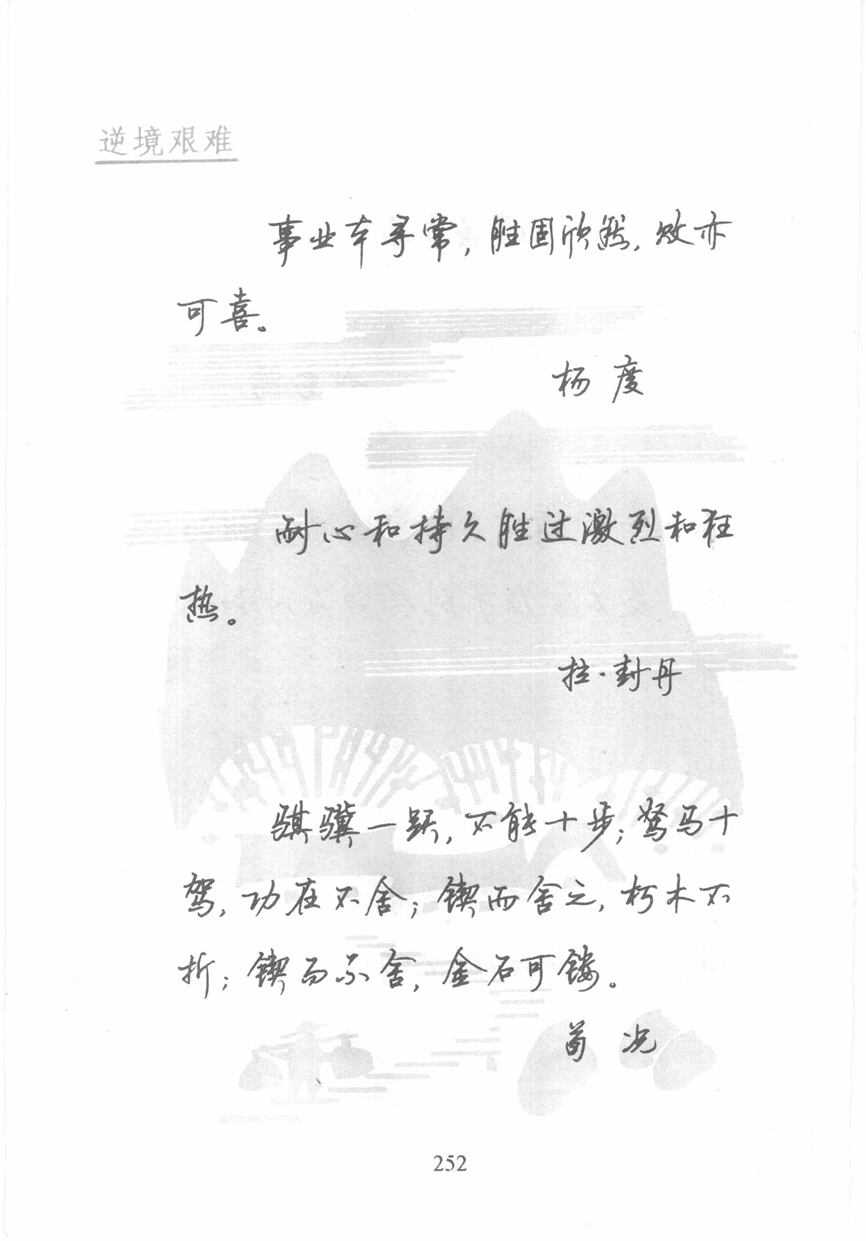 逆境艰难
事业本寻常，胜固欣然，败亦
可喜。
杨度
耐心和持久胜过激烈和狂
热。
拉·封丹
骐骥一跃，不能十步；驽马十
驾，功在不舍；锲而舍之，朽木不
折；锲而不舍，金石可镂。
荀况
252